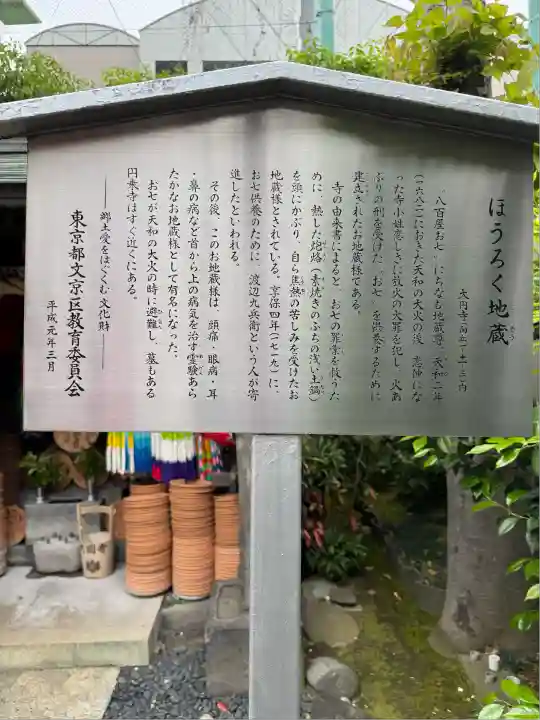 ほうろく地蔵
大円寺 向丘一―十一―三
“八百屋お七”にちなむ地蔵尊。天和二年
(一六八二)におきた天和の大火の後、恋仲にな
った寺小姓恋しさに放火の大罪を犯し、火あ
ぶりの刑を受けた“お七”を供養するために
建立されたお地蔵様である。
寺の由来書によると、お七の罪業を救うた
めに、熱した焙烙(素焼きのふちの浅い土鍋)
を頭にかぶり、自ら焦熱の苦しみを受けたお
地蔵様とされている。享保四年(一七一九)に、
お七供養のために、渡辺九兵衛という人が寄
進したといわれる。
その後、このお地蔵様は、頭痛・眼病・耳
・鼻の病など首から上の病気を治す霊験あら
たかなお地蔵様として有名になった。
お七が天和の大火の時に避難し、墓もある
円乗寺はすぐ近くにある。
――郷土愛をはぐくむ文化財――
東京都文京区教育委員会
平成元年三月